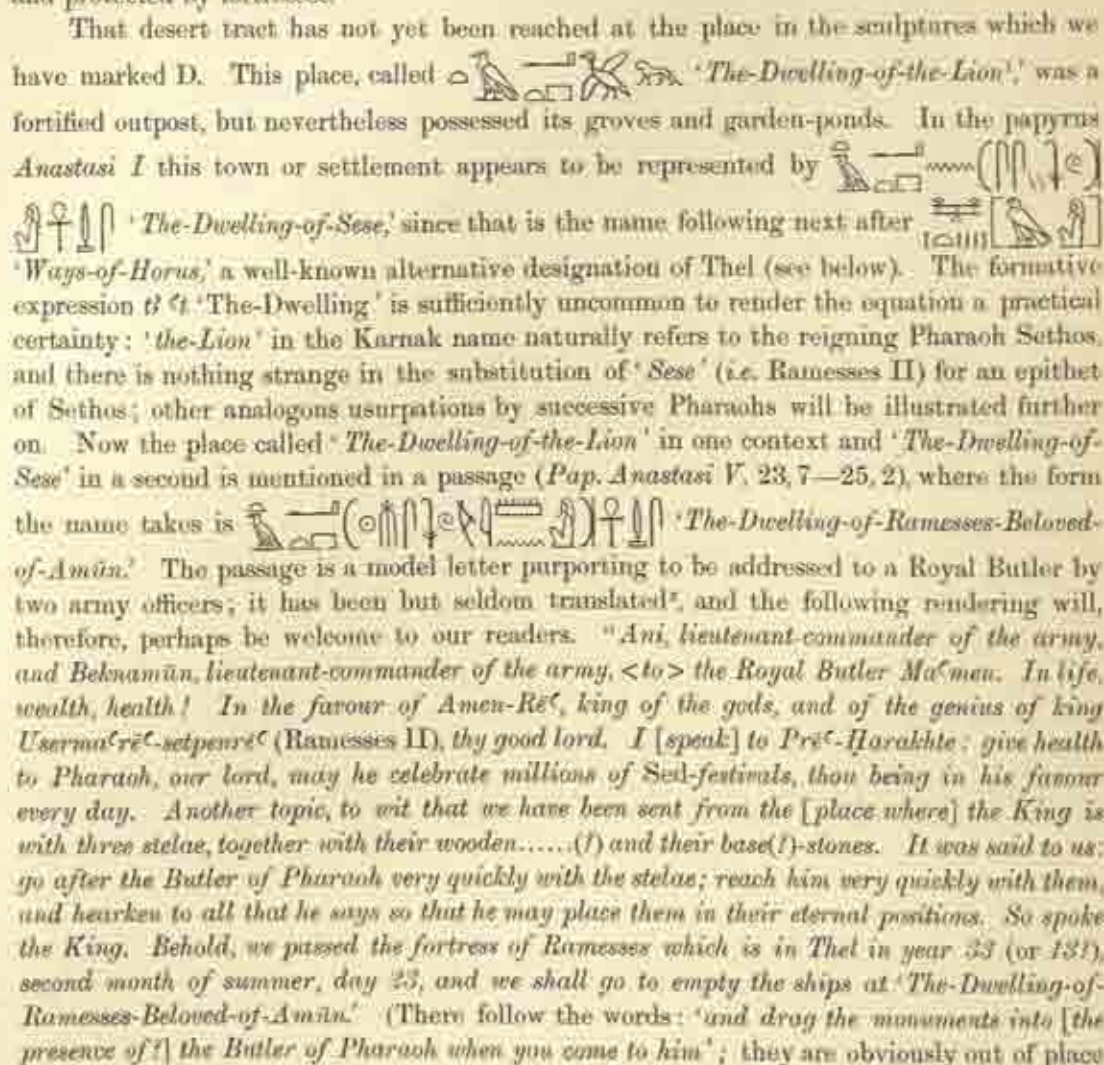 That desert tract has not yet been reached at the place in the sculptures which we
have marked D. This place, called 'The-Dwelling-of-the-Lion¹,' was a
fortified outpost, but nevertheless possessed its groves and garden-ponds. In the papyrus
Anastasi I this town or settlement appears to be represented by
'The-Dwelling-of-Sese,' since that is the name following next after
'Ways-of-Horus,' a well-known alternative designation of Thel (see below). The formative
expression tꜣ ꜥt 'The-Dwelling' is sufficiently uncommon to render the equation a practical
certainty: 'the-Lion' in the Karnak name naturally refers to the reigning Pharaoh Sethos,
and there is nothing strange in the substitution of 'Sese' (i.e. Ramesses II) for an epithet
of Sethos; other analogous usurpations by successive Pharaohs will be illustrated further
on. Now the place called 'The-Dwelling-of-the-Lion' in one context and 'The-Dwelling-of-
Sese' in a second is mentioned in a passage (Pap. Anastasi V, 23, 7—25, 2), where the form
the name takes is 'The-Dwelling-of-Ramesses-Beloved-
of-Amūn.' The passage is a model letter purporting to be addressed to a Royal Butler by
two army officers; it has been but seldom translated², and the following rendering will,
therefore, perhaps be welcome to our readers. "Ani, lieutenant-commander of the army,
and Beknamūn, lieutenant-commander of the army, <to> the Royal Butler Maꜥmen. In life,
wealth, health! In the favour of Amen-Rēꜥ, king of the gods, and of the genius of king
Usermaꜥrēꜥ-setpenrēꜥ (Ramesses II), thy good lord. I [speak] to Prēꜥ-Ḥarakhte: give health
to Pharaoh, our lord, may he celebrate millions of Sed-festivals, thou being in his favour
every day. Another topic, to wit that we have been sent from the [place where] the King is
with three stelae, together with their wooden......(?) and their base(?)-stones. It was said to us:
go after the Butler of Pharaoh very quickly with the stelae; reach him very quickly with them,
and hearken to all that he says so that he may place them in their eternal positions. So spoke
the King. Behold, we passed the fortress of Ramesses which is in Thel in year 33 (or 13?),
second month of summer, day 23, and we shall go to empty the ships at 'The-Dwelling-of-
Ramesses-Beloved-of-Amūn.' (There follow the words: 'and drag the monuments into [the
presence of?] the Butler of Pharaoh when you come to him'; they are obviously out of place